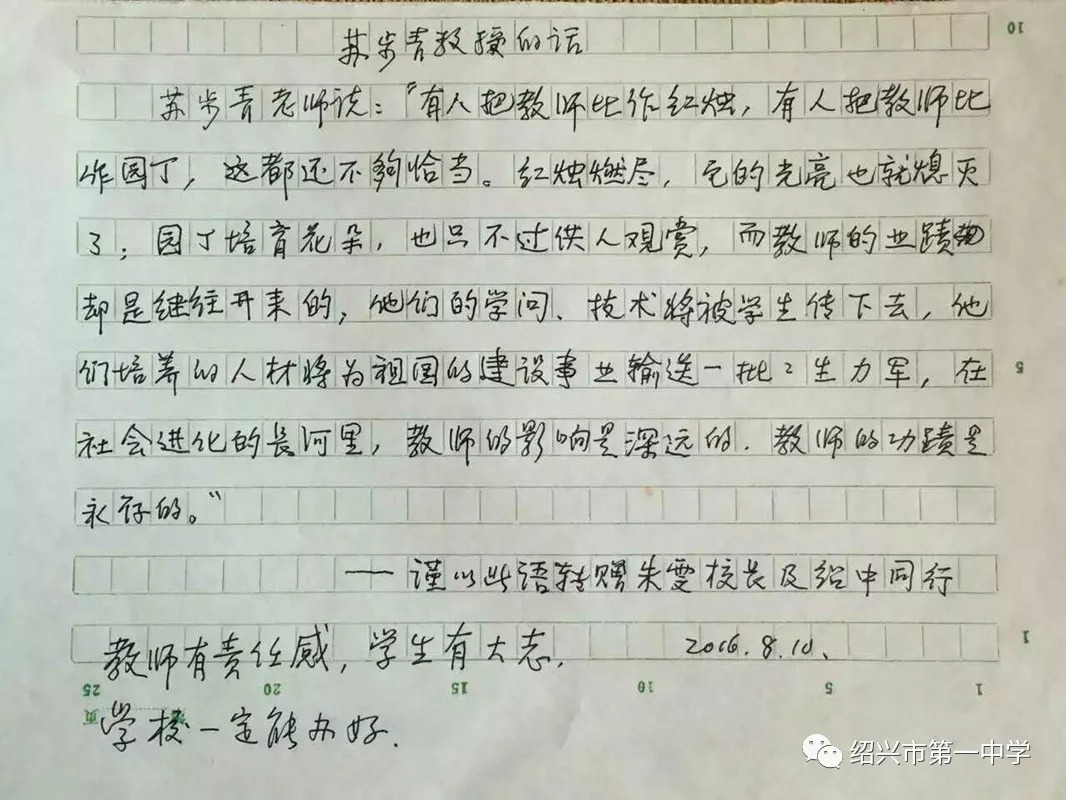 苏步青教授的话
苏步青老师说：“有人把教师比作红烛，有人把教师比
作园丁，这都还不够恰当。红烛燃尽，它的光亮也就熄灭
了；园丁培育花朵，也只不过供人观赏，而教师的业蹟
却是继往开来的，他们的学问、技术将被学生传下去，他
们培养的人材将为祖国的建设事业输送一批々生力军，在
社会进化的长河里，教师的影响是深远的．教师的功蹟是
永存的。”
——谨以此语转赠朱雯校长及绍中同行
教师有责任感，学生有大志，
2016.8.10、
学校一定能办好．
10
5
1
25 20 15 10 5 1
页
绍兴市第一中学